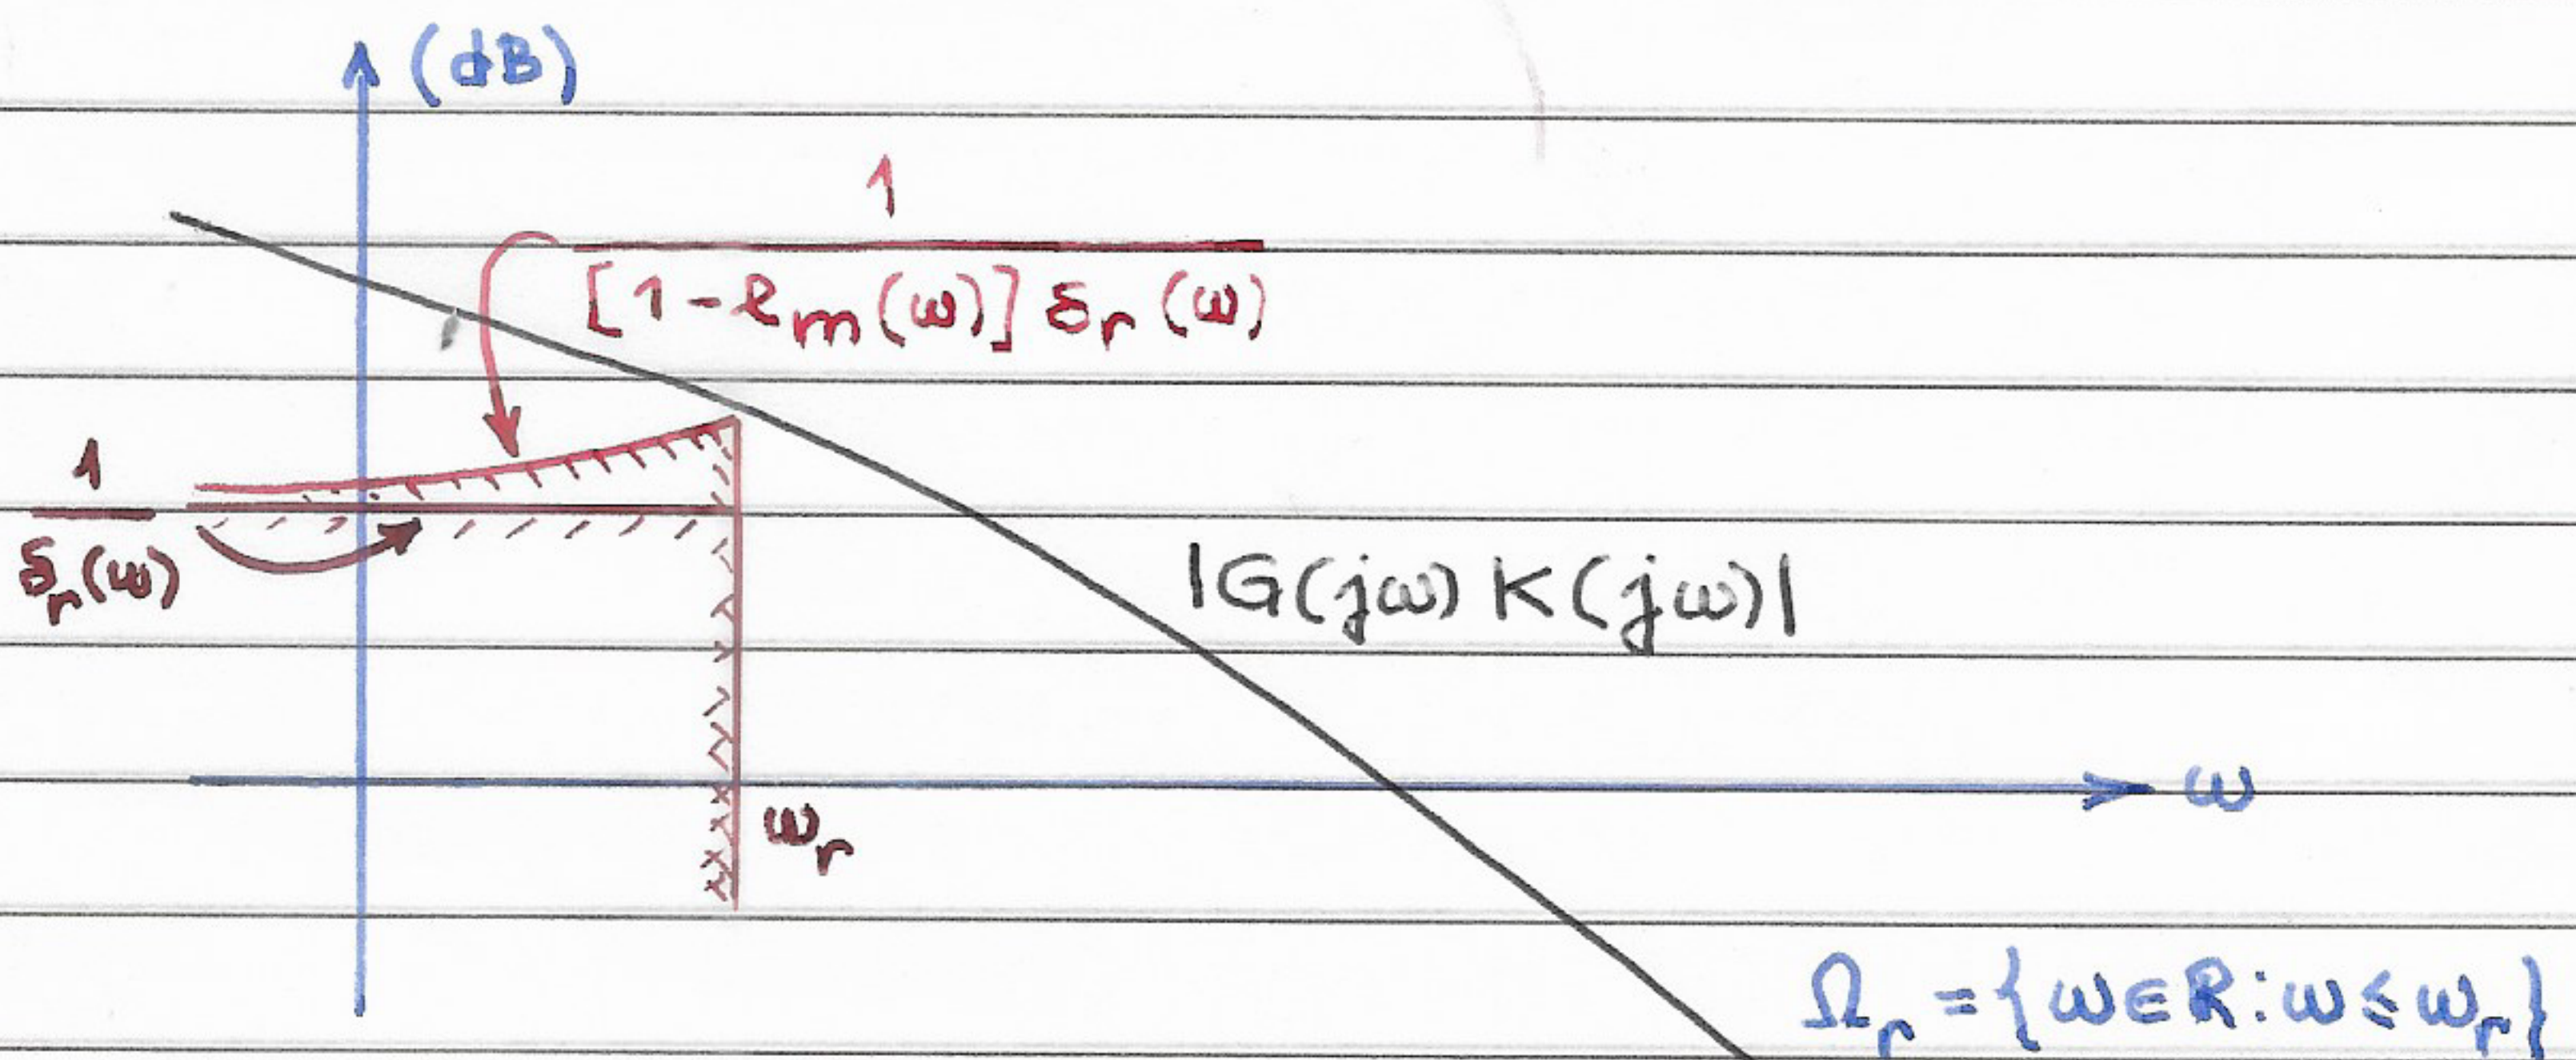 (dB)
1
[1-ℓm(ω)] δr(ω)
1
δr(ω)
|G(jω) K(jω)|
ω
ωr
Ωr = {ω∈R: ω ≤ ωr}